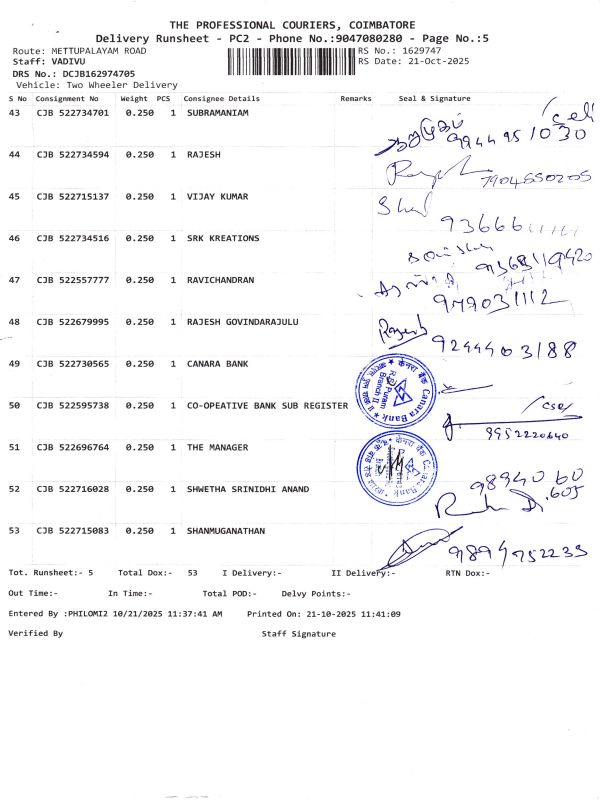 THE PROFESSIONAL COURIERS, COIMBATORE
Delivery Runsheet - PC2 - Phone No.:9047080280 - Page No.:5
Route: METTUPALAYAM ROAD RS No.: 1629747
Staff: VADIVU RS Date: 21-Oct-2025
DRS No.: DCJB162974705
Vehicle: Two Wheeler Delivery
S No Consignment No Weight PCS Consignee Details Remarks Seal & Signature
43 CJB 522734701 0.250 1 SUBRAMANIAM
9944951030
44 CJB 522734594 0.250 1 RAJESH
7904550205
45 CJB 522715137 0.250 1 VIJAY KUMAR
46 CJB 522734516 0.250 1 SRK KREATIONS
47 CJB 522557777 0.250 1 RAVICHANDRAN
48 CJB 522679995 0.250 1 RAJESH GOVINDARAJULU
Rajesh
9244403188
49 CJB 522730565 0.250 1 CANARA BANK
केनरा बैंक Canara Bank
R.S. Puram Branch
50 CJB 522595738 0.250 1 CO-OPEATIVE BANK SUB REGISTER
9952220640
51 CJB 522696764 0.250 1 THE MANAGER
केनरा बैंक Canara Bank
52 CJB 522716028 0.250 1 SHWETHA SRINIDHI ANAND
98940 60
605
53 CJB 522715083 0.250 1 SHANMUGANATHAN
9894752233
Tot. Runsheet:- 5 Total Dox:- 53 I Delivery:- II Delivery:- RTN Dox:-
Out Time:- In Time:- Total POD:- Delvy Points:-
Entered By :PHILOMI2 10/21/2025 11:37:41 AM Printed On: 21-10-2025 11:41:09
Verified By Staff Signature